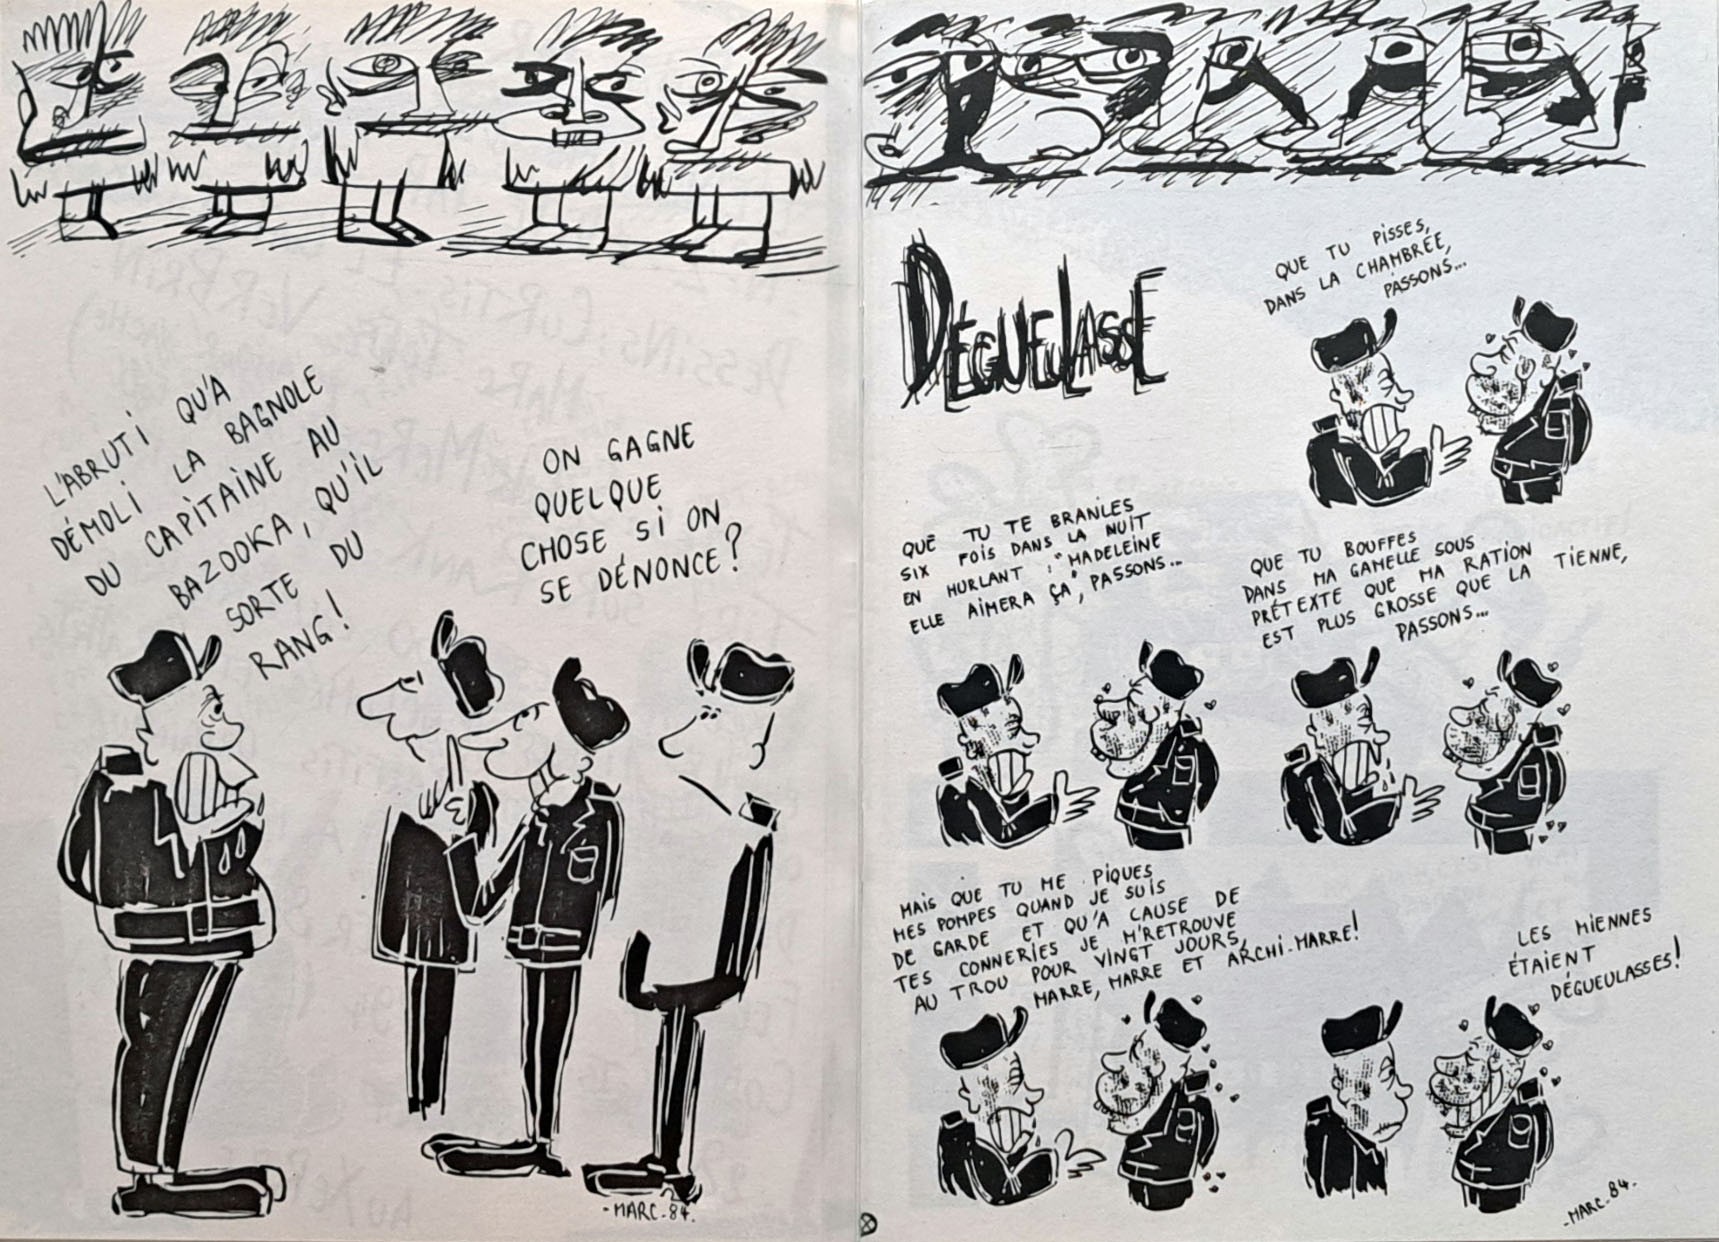 L'ABRUTI QU'A
DÉMOLI LA BAGNOLE
DU CAPITAINE AU
BAZOOKA, QU'IL
SORTE DU
RANG!
ON GAGNE
QUELQUE
CHOSE SI ON
SE DÉNONCE?
-MARC-84.
DÉGUEULASSE
QUE TU PISSES,
DANS LA CHAMBRÉE,
PASSONS...
QUE TU TE BRANLES
SIX FOIS DANS LA NUIT
EN HURLANT : "MADELEINE
ELLE AIMERA ÇA", PASSONS...
QUE TU BOUFFES
DANS MA GAMELLE SOUS
PRÉTEXTE QUE MA RATION
EST PLUS GROSSE QUE LA TIENNE,
PASSONS...
MAIS QUE TU ME PIQUES
MES POMPES QUAND JE SUIS
DE GARDE ET QU'A CAUSE DE
TES CONNERIES JE M'RETROUVE
AU TROU POUR VINGT JOURS,
MARRE, MARRE ET ARCHI-MARRE!
LES MIENNES
ÉTAIENT
DÉGUEULASSES!
-MARC-84.